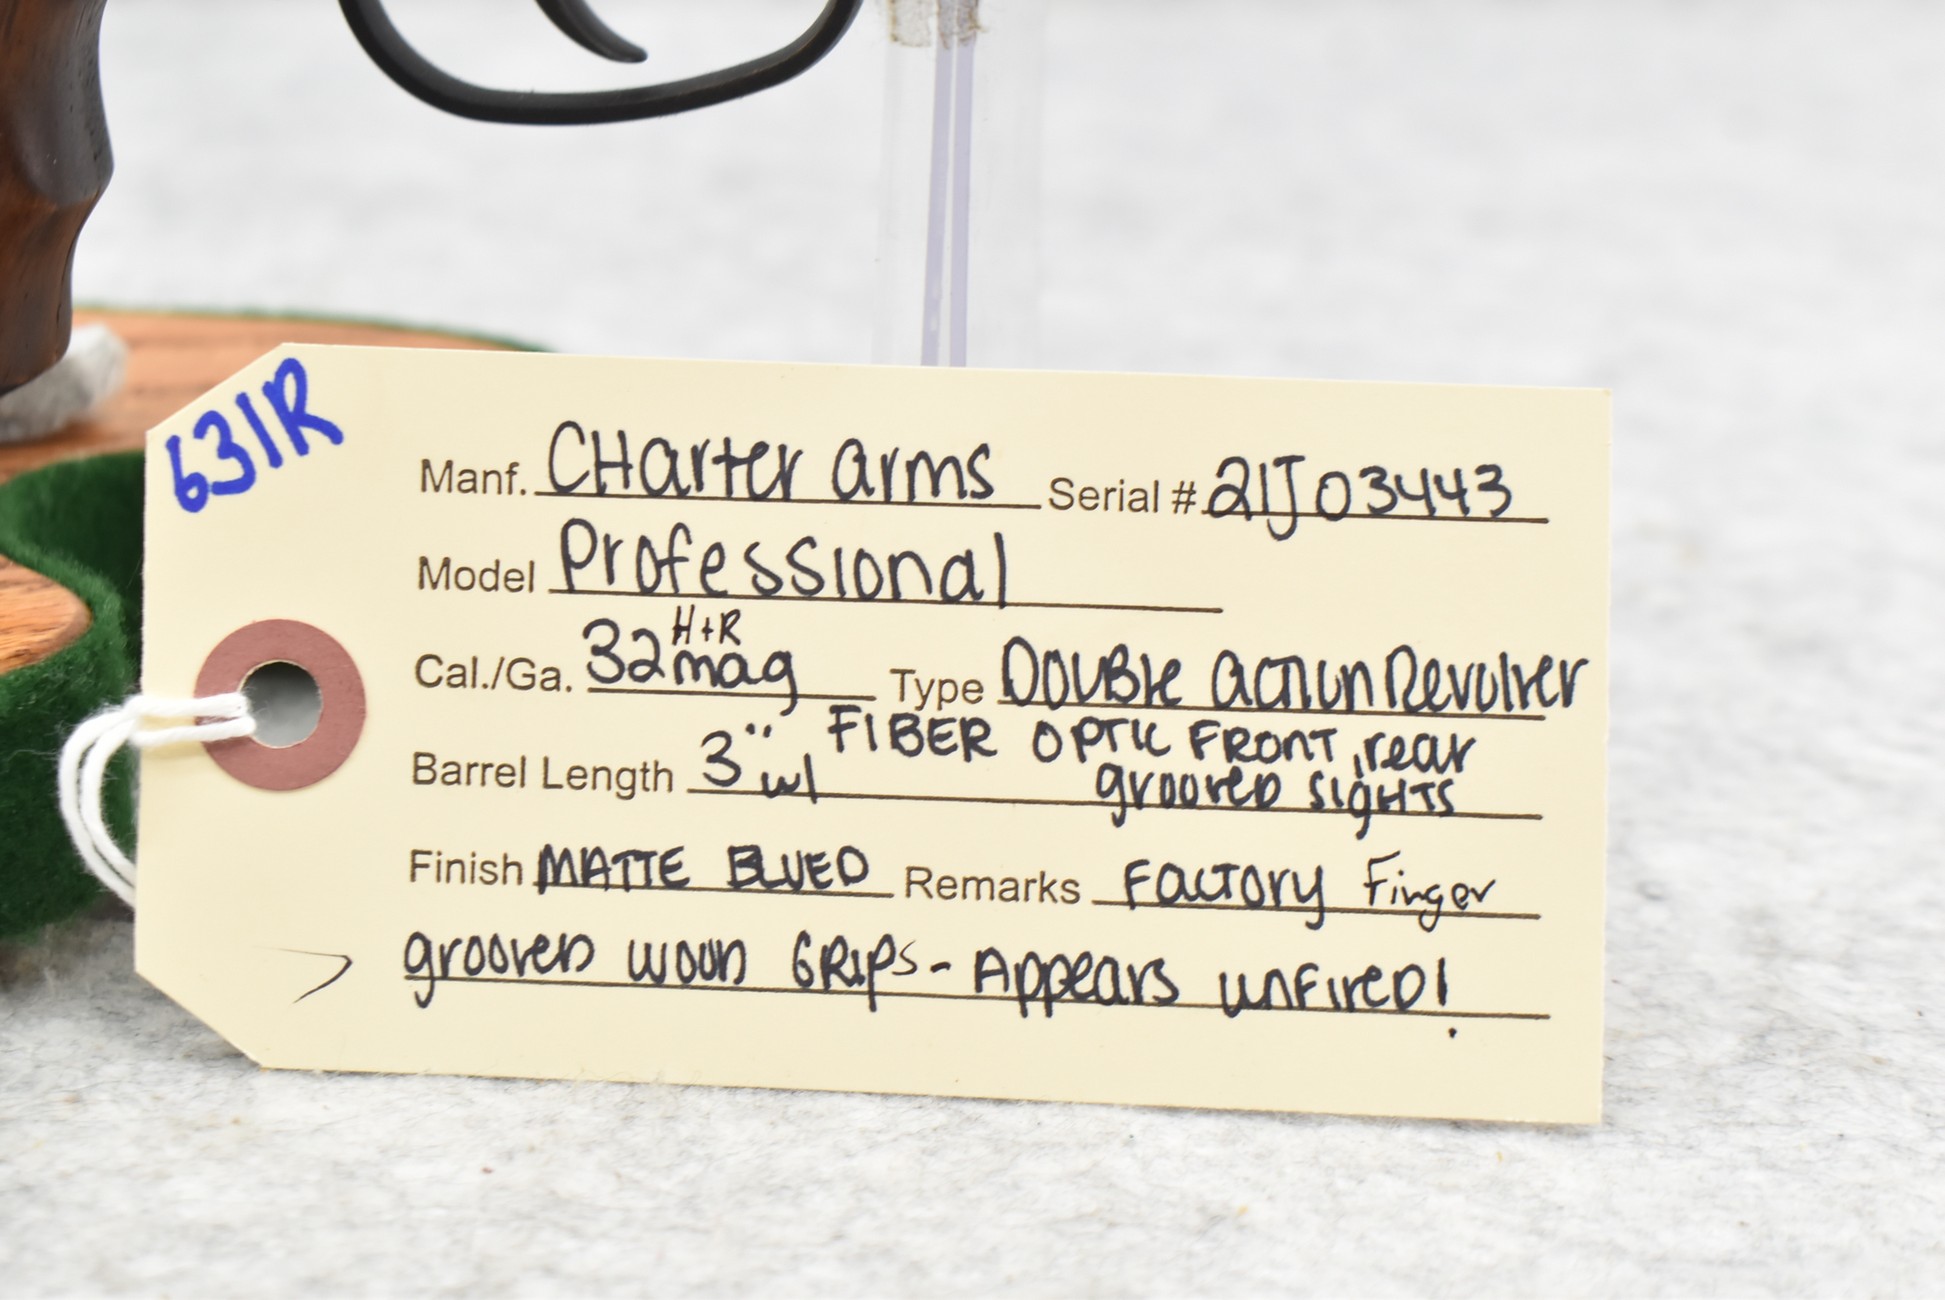 631R
Manf. CHarter arms Serial # 21J03443
Model Professional
Cal./Ga. 32 H+R mag Type DOUBle actiun Revolver
Barrel Length 3" w/ FIBER OPTIC FRONT, rear
grooved SIGHTS
Finish MATTE BLUED Remarks Factory Finger
grooved wood GRIPS - Appears unfired!